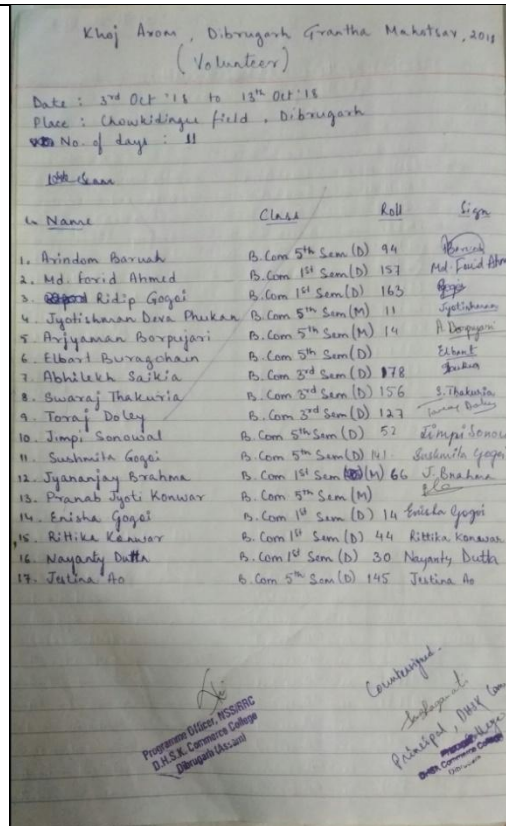 Khoj Arom, Dibrugarh Grantha Mahotsav, 2018
(Volunteer)
Date : 3rd Oct '18 to 13th Oct '18
Place : Chowkidingee field, Dibrugarh
No. of days : 11
Name Class Roll Sign
1. Arindom Baruah B.Com 5th Sem (D) 94 Baruah
2. Md. Forid Ahmed B.Com 1st Sem (D) 157 Md. Forid Ahm
3. Ridip Gogoi B.Com 1st Sem (D) 163 Gogoi
4. Jyotishman Deva Phukan B.Com 5th Sem (M) 11 Jyotishman
5. Arjyaman Borpujari B.Com 5th Sem (M) 14 A. Borpujari
6. Elbart Buragohain B.Com 5th Sem (D) Elbart
7. Abhilekh Saikia B.Com 3rd Sem (D) 178 Saikia
8. Swaraj Thakuria B.Com 3rd Sem (D) 156 S. Thakuria
9. Toraj Doley B.Com 3rd Sem (D) 127 Toraj Doley
10. Jimpi Sonowal B.Com 5th Sem (D) 52 Jimpi Sonow
11. Sushmita Gogoi B.Com 5th Sem (D) 141 Sushmita Gogoi
12. Jyananjay Brahma B.Com 1st Sem (M) 66 J. Brahma
13. Pranab Jyoti Konwar B.Com 5th Sem (M)
14. Enisha Gogoi B.Com 1st Sem (D) 14 Enisha Gogoi
15. Rittika Konwar B.Com 1st Sem (D) 44 Rittika Konwar
16. Nayanty Dutta B.Com 1st Sem (D) 30 Nayanty Dutta
17. Jestina Ao B.Com 5th Sem (D) 145 Jestina Ao
Programme Officer, NSS/RRC
D.H.S.K. Commerce College
Dibrugarh (Assam)
Countersigned
Principal, DHSK Com
College
DHSK Commerce College
Dibrugarh